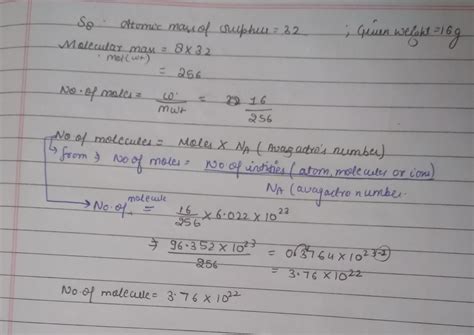 S8 : Atomic mass of sulphur = 32 ; Given weight = 16g
Molecular mass = 8 x 32
mol(wt)
= 256
No. of moles = w/mwt = 16/256
No of molecules = Moles x NA (Avagadro's number)
from → No of moles = No of intities (atom, molecules or ions)/NA (avagadro number.
No. of molecule = 16/256 x 6.022 x 10^22
⇒ 96.352 x 10^23/256 = 0.3764 x 10^23-1
= 3.76 x 10^22
No. of molecule = 3.76 x 10^22